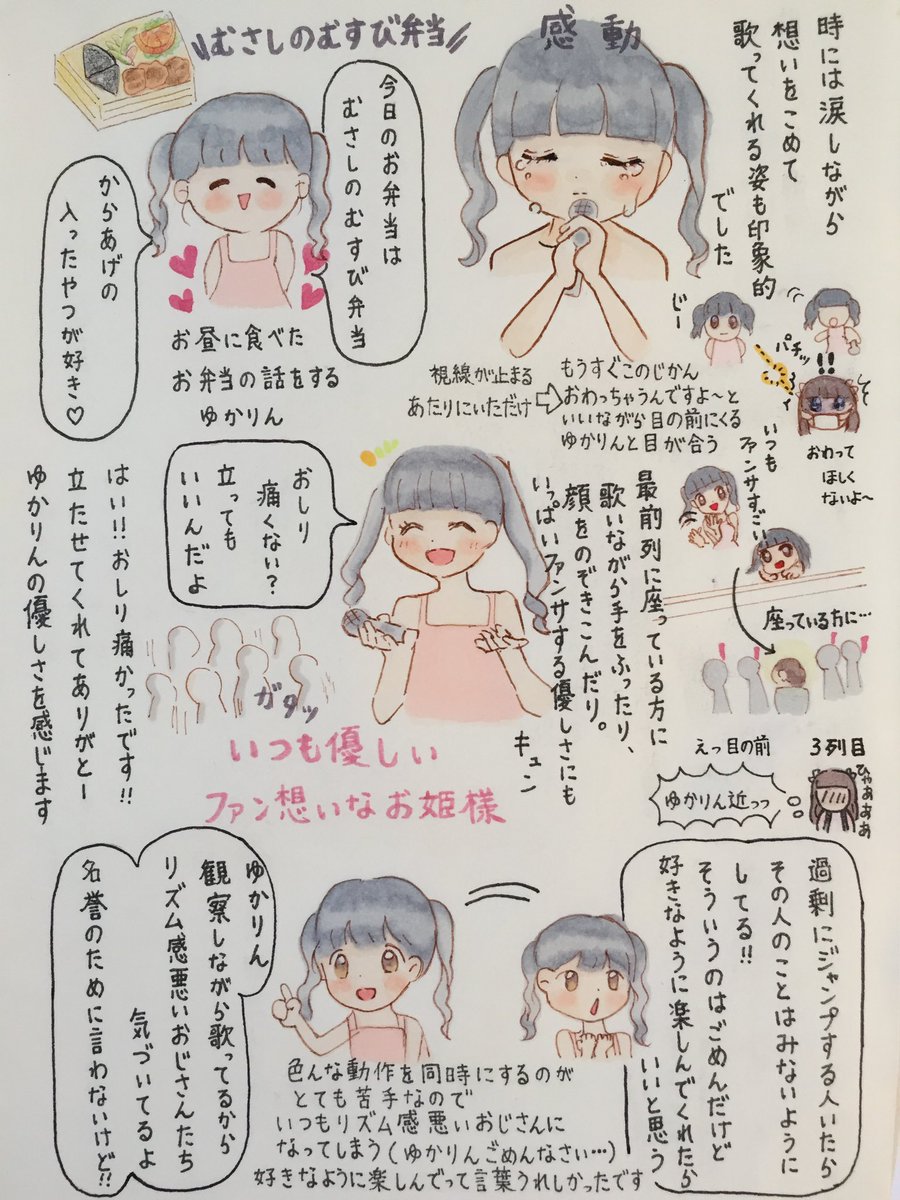 時には涙しながら
想いをこめて
歌ってくれる姿も印象的
でした
感動
\\むさしのむすび弁当//
今日のお弁当は
むさしのむすび弁当
からあげの
入ったやつが好き♡
お昼に食べた
お弁当の話をする
ゆかりん
じー
パチッ
!!
視線が止まる
あたりにいただけ
⇨
もうすぐこのじかん
おわっちゃうんですよ〜と
いいながら目の前にくる
ゆかりんと目が合う
おわって
ほしく
ないよ〜
いつも
ファンサすごい
最前列に座っている方に
歌いながら手をふったり、
顔をのぞきこんだり。
いっぱいファンサする優しさにも
キュン
座っている方に…
おしり
痛くない?
立っても
いいんだよ
ガタッ
はい!!おしり痛かったです!!
立たせてくれてありがとー
ゆかりんの優しさを感じます
いつも優しい
ファン想いなお姫様
えっ目の前
3列目
ゆかりん近っっ
ひゃぁぁぁ
過剰にジャンプする人いたら
その人のことはみないように
してる!!
そういうのはごめんだけど
好きなように楽しんでくれたら
いいと思う
ゆかりん
観察しながら歌ってるから
リズム感悪いおじさんたち
気づいてるよ
名誉のために言わないけど!!
色んな動作を同時にするのが
とても苦手なので
いつもリズム感悪いおじさんに
なってしまう(ゆかりんごめんなさい…)
好きなように楽しんでって言葉うれしかったです